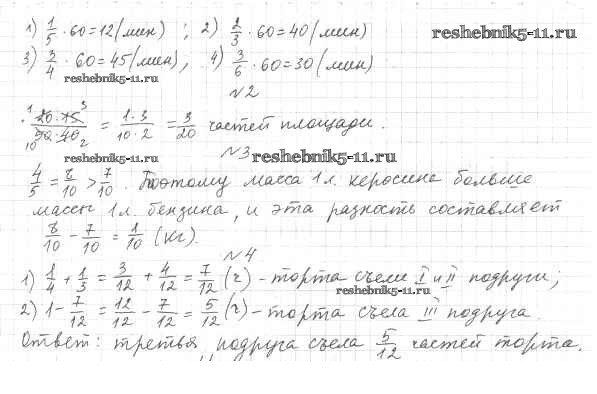 1) 1/5 · 60 = 12 (мин) ; 2) 2/3 · 60 = 40 (мин)
reshebnik5-11.ru
3) 3/4 · 60 = 45 (мин), 4) 3/6 · 60 = 30 (мин)
reshebnik5-11.ru
№2
20·15/50·40 = 1·3/10·2 = 3/20 частей площади.
reshebnik5-11.ru
№3 reshebnik5-11.ru
4/5 = 8/10 > 7/10. Поэтому масса 1 л. керосина больше
массы 1 л. бензина, и эта разность составляет
8/10 - 7/10 = 1/10 (кг).
№4
1) 1/4 + 1/3 = 3/12 + 4/12 = 7/12 (ч) - торта съели I и II подруги;
reshebnik5-11.ru
2) 1 - 7/12 = 12/12 - 7/12 = 5/12 (ч) - торта съела III подруга.
Ответ: третья подруга съела 5/12 частей торта.